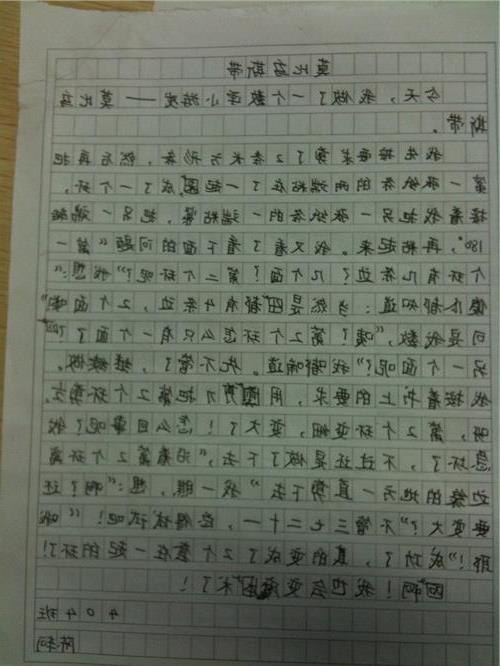 莫比乌斯带
今天，我做了一个数学小游戏——莫比乌
斯带。
我先按要求剪了2条长方形条，然后再把
第一张纸条的两端粘在了一起，圈成了一个环。
接着我把另一张纸条的一端粘紧，把另一端翻
180°，再粘起来。我又看了看下面的问题“第一
个环有几条边？几个面？第二个环呢？”我想：“
傻瓜都知道：当然是都有4条边，2个面啦”
可是我数，“咦！第2个环怎么只有一个面了？
另一个面呢？”我嘟喃道。先不管了，继续做。
我按着书上的要求，用剪刀把第2个环剪
啊，第2个环变细，变大了！怎么回事呢？我
坏了，不过还是做了下去，“沿着第2个环离
边缘的地方一直剪下去”我一瞧，想：“啊？还
要变大？”不管三七二十一，总得试试吧！“哦
耶！”成功了，真的变成了2个套在一起的环了！
啊！我也会变魔术了！
404班
陈